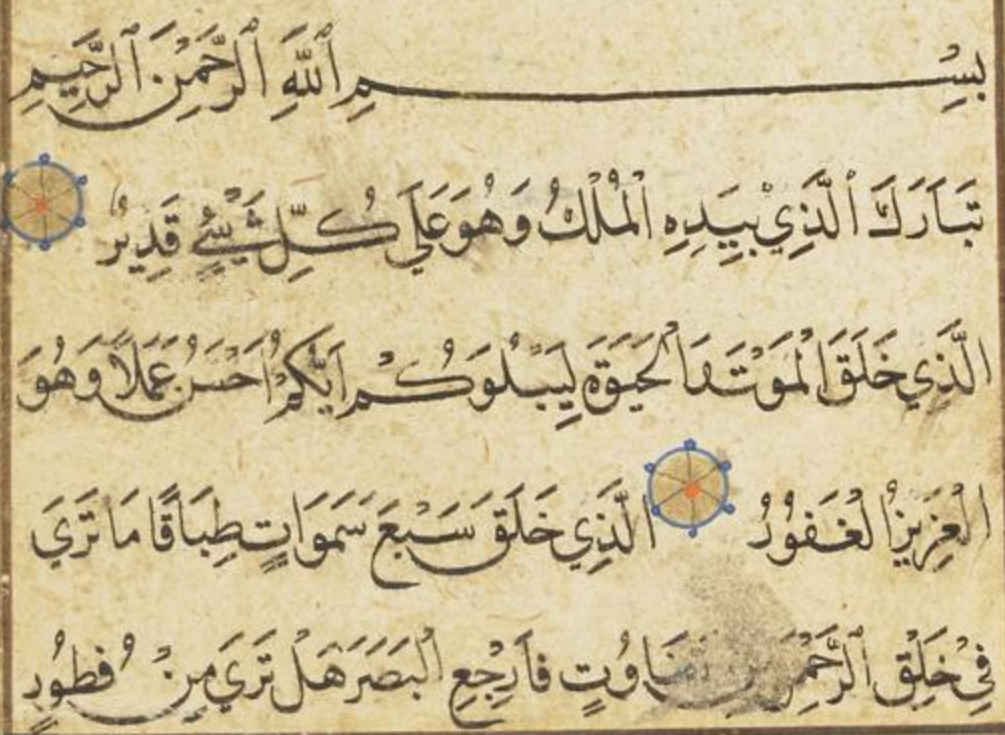 بِسْمِ ٱللَّهِ ٱلرَّحْمَٰنِ ٱلرَّحِيمِ
تَبَارَكَ ٱلَّذِي بِيَدِهِ الْمُلْكُ وَهُوَ عَلَىٰ كُلِّ شَيْءٍ قَدِيرٌ
الَّذِي خَلَقَ الْمَوْتَ وَالْحَيَوٰةَ لِيَبْلُوَكُمْ اَيُّكُمْ اَحْسَنُ عَمَلًا وَهُوَ
الْعَزِيزُ الْغَفُورُ الَّذِي خَلَقَ سَبْعَ سَمَوَاتٍ طِبَاقًا مَا تَرَىٰ
فِي خَلْقِ الرَّحْمٰنِ مِنْ تَفَاوُتٍ فَارْجِعِ الْبَصَرَ هَلْ تَرَىٰ مِنْ فُطُورٍ